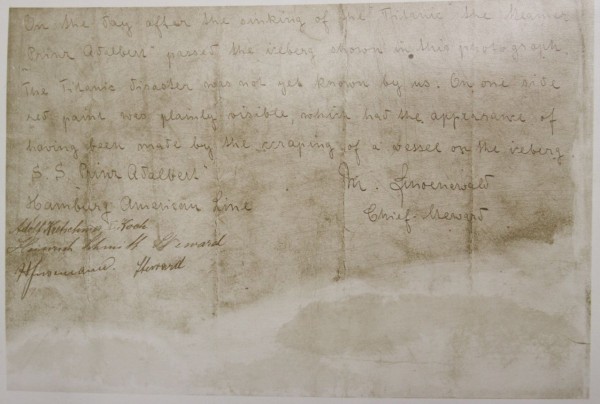 On the day after the sinking of the "Titanic" the steamer
"Prinz Adalbert" passet the iceberg shown in this photograph.
The Titanic disaster was not yet known by us. On one side
red paint was plainly visible, which had the appearance of
having been made by the scraping of a vessel on the iceberg
S. S. "Prinz Adalbert" M. Linoenewald
Hamburg American Line Chief Steward
Koch
Heinrich Steward
Steward